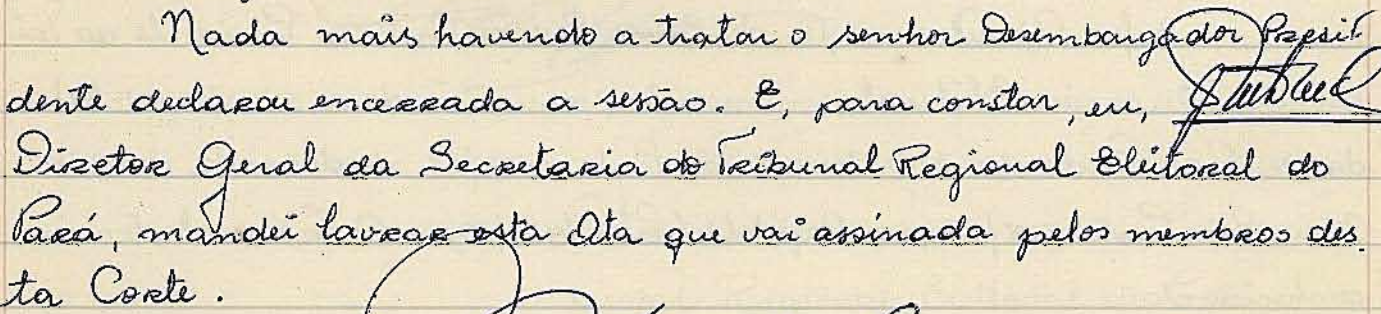 Nada mais havendo a tratar o senhor Desembargador Presi-
dente declarou encerrada a sessão. E, para constar, eu,
Diretor Geral da Secretaria do Tribunal Regional Eleitoral do
Pará, mandei lavrar esta Ata que vai assinada pelos membros des
ta Corte.